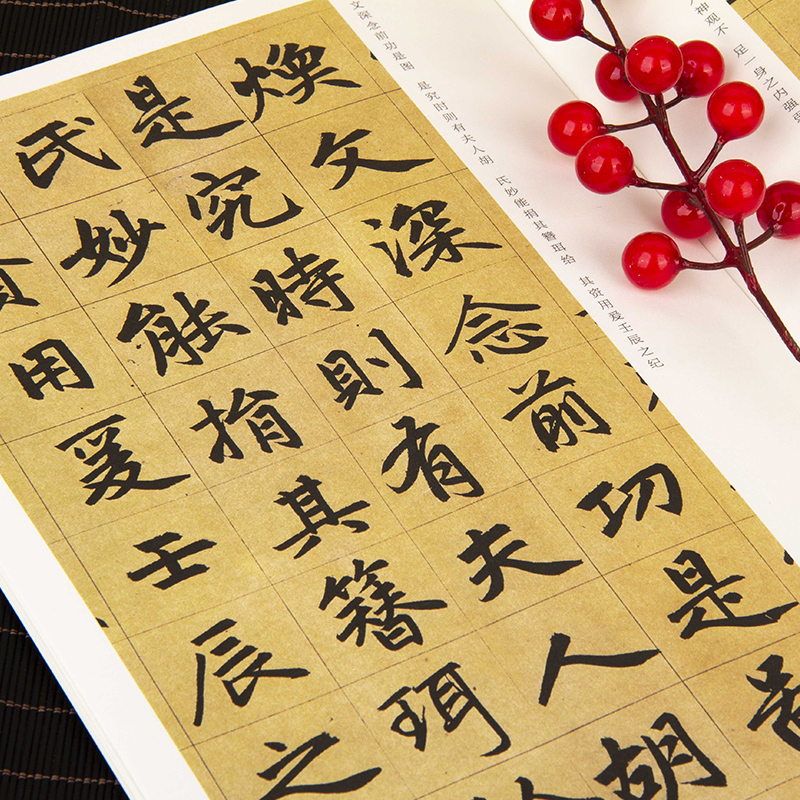 煥文深念前功是
是究時則有夫人胡
氏妙能捐其簪珥
用爰壬辰之
文深念前功是图 是究时则有夫人胡 氏妙能捐其簪珥给 其资用爰壬辰之纪
神观不 足一身之内强